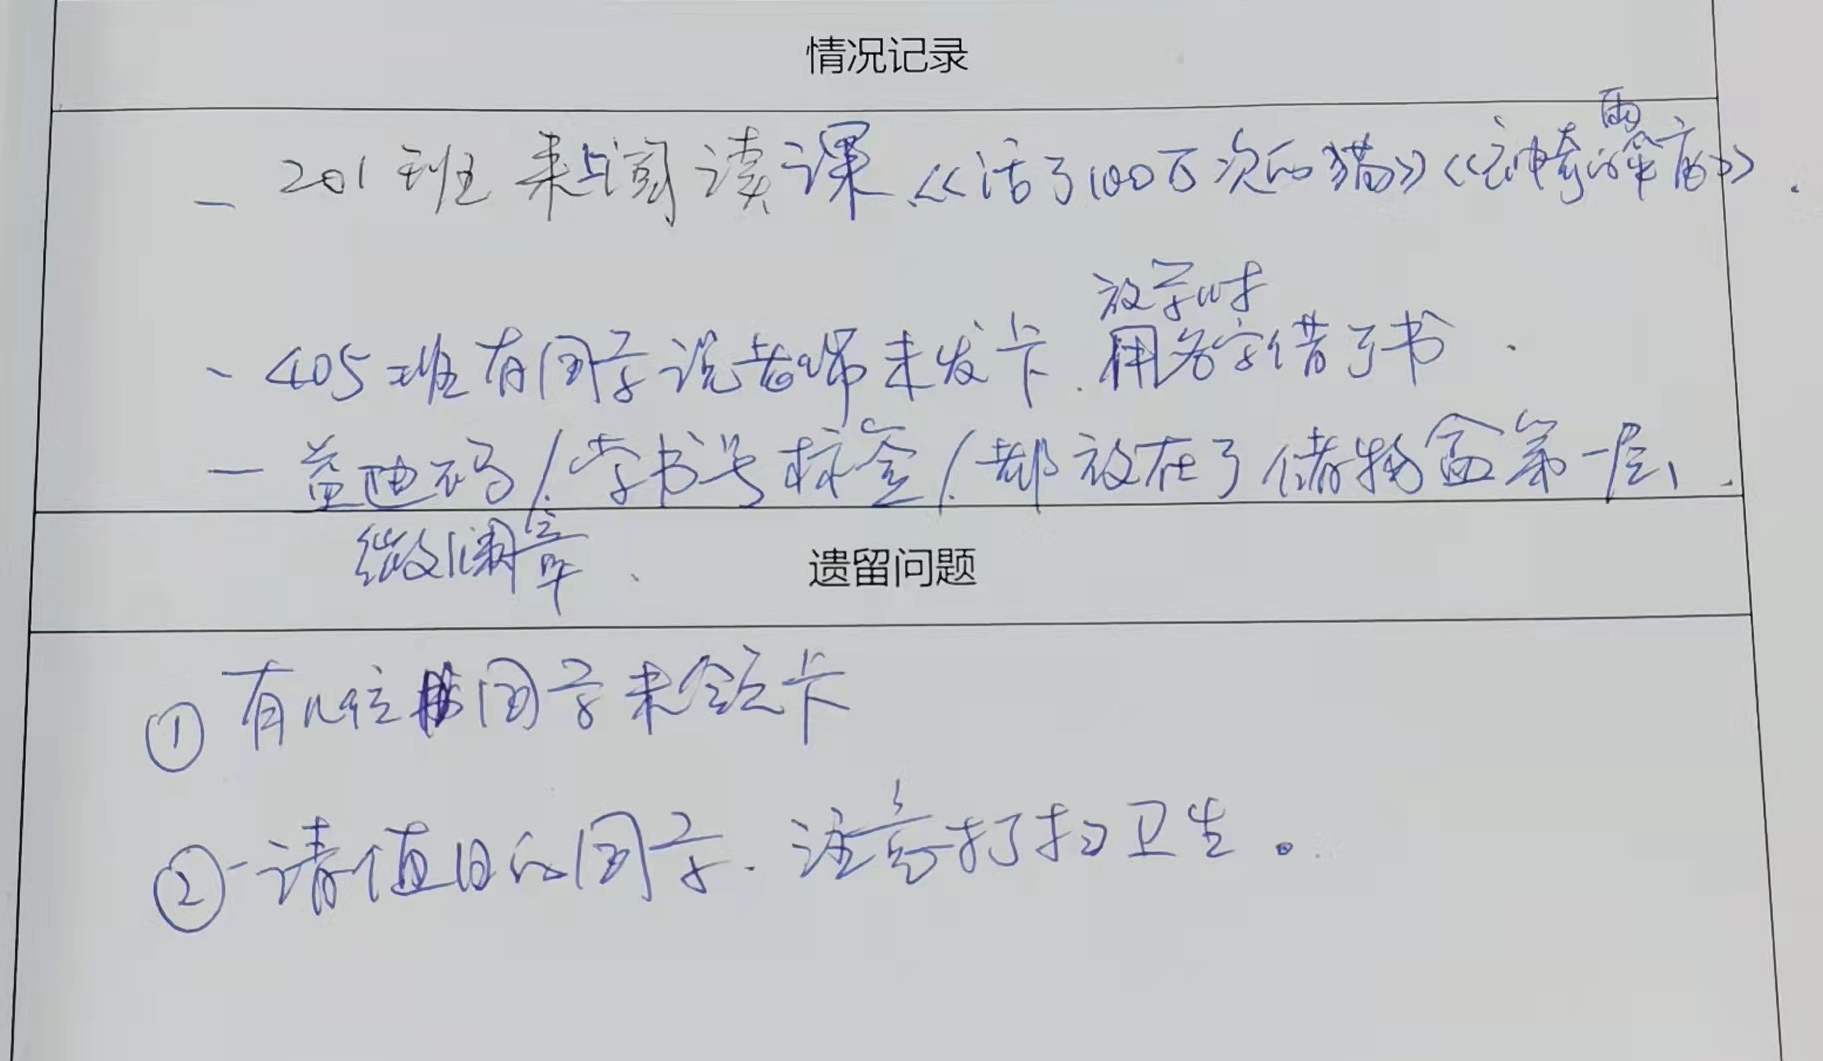 情况记录
- 201班来上阅读课《活了100万次的猫》《神奇的雨伞店》.
放学时
- 405班有同学说老师未发卡.用名字借了书.
- 益迪码/索书号标签/都放在了储物盒第一层.
微澜章.
遗留问题
① 有几位同学未领卡
② 请值日的同学.注意打扫卫生。